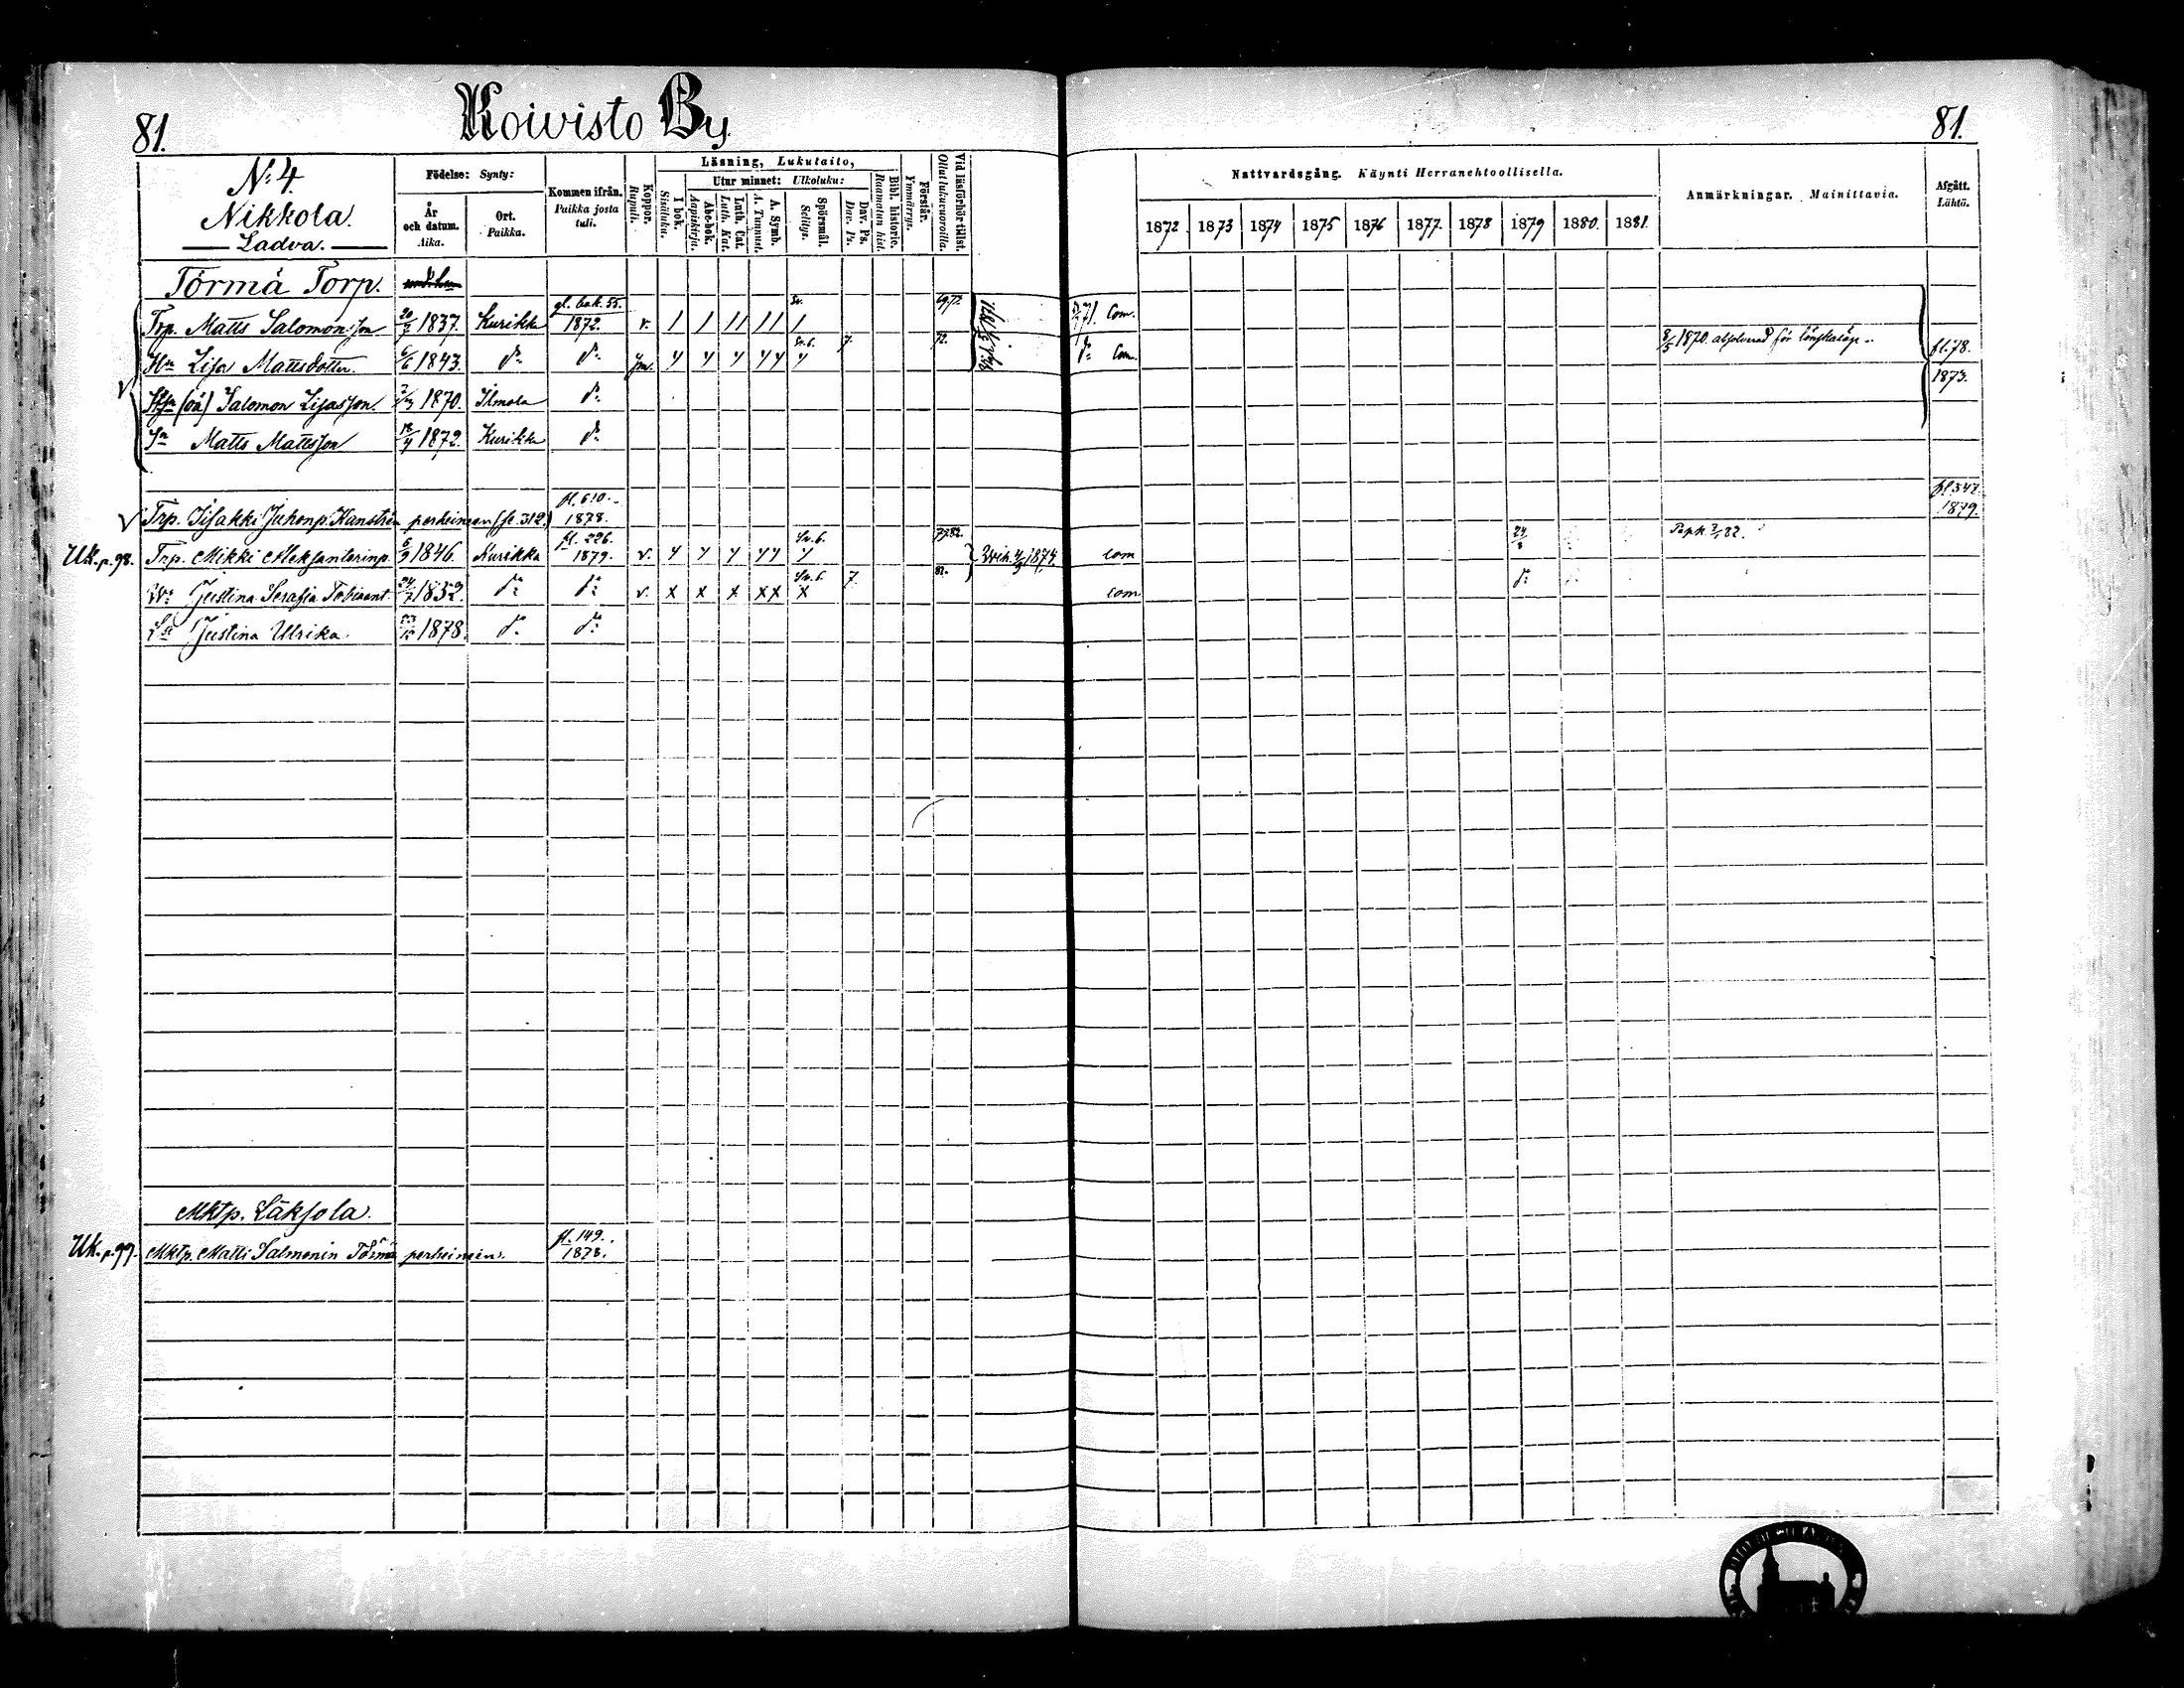 81.
Koivisto By
81.
N:4
Nikkola.
Ladva.
Födelse: Synty:
År och datum. Aika.
Ort. Paikka.
Kommen ifrån. Paikka josta tuli.
Koppor. Rupuli.
Läsning, Lukutaito,
I bok. Sisäluku.
Utur minnet: Ulkoluku:
Abc-bok. Aapiskirja.
Luth. Cat. Luth. Kat.
A. Symb. A. Tunnust.
Spörsmål. Selitys.
Dav. Ps. Dav. Ps.
Bibl. historie. Raamatun hist.
Förstår. Ymmärrys.
Vid läsförhör tillst. Ollut lukuvuoroilla.
Nattvardsgång. Käynti Herranehtoollisella.
1872 1873 1874 1875 1876 1877 1878 1879 1880. 1881.
Anmärkningar. Mainittavia.
Afgått. Lähtö.
Törmä Torp.
Trp. Matts Salomonsson 1837. Kurikka gl. bok. 55. 1872. v. Sv. 69.72. 71. Com.
Hu Lisa Mattsdotter 6/6 1843. do do Sv. 6. 7. 72. do Com. 8/5 1870. absolverad för fl. 78.
(oä) Salomon Lisasson. 1870. Ilmola do 1873.
Sn Matts Mattsson 1872. Kurikka do
Trp. Iisakki Juhonp. Hanström perheineen (se. 312.) fl. 610. 1878. fl. 347. 1879.
Uk. p. 98. Trp. Mikki Aleksanterinp. 6/9 1846. Kurikka fl. 226. 1879. v. Sv. 6. 77.82. Wih. 1874. com 24/8
Wo Justina Serafia Tobiaant. 24/7 1832. do do v. x x x xx x Sv. 6. 7. 81. com do
Justina Ulrika. 1878. do do
Mktp. Läksola.
Uk. p. 97. Mktp. Matti Salmonin Törmä perheineen. fl. 149. 1878.